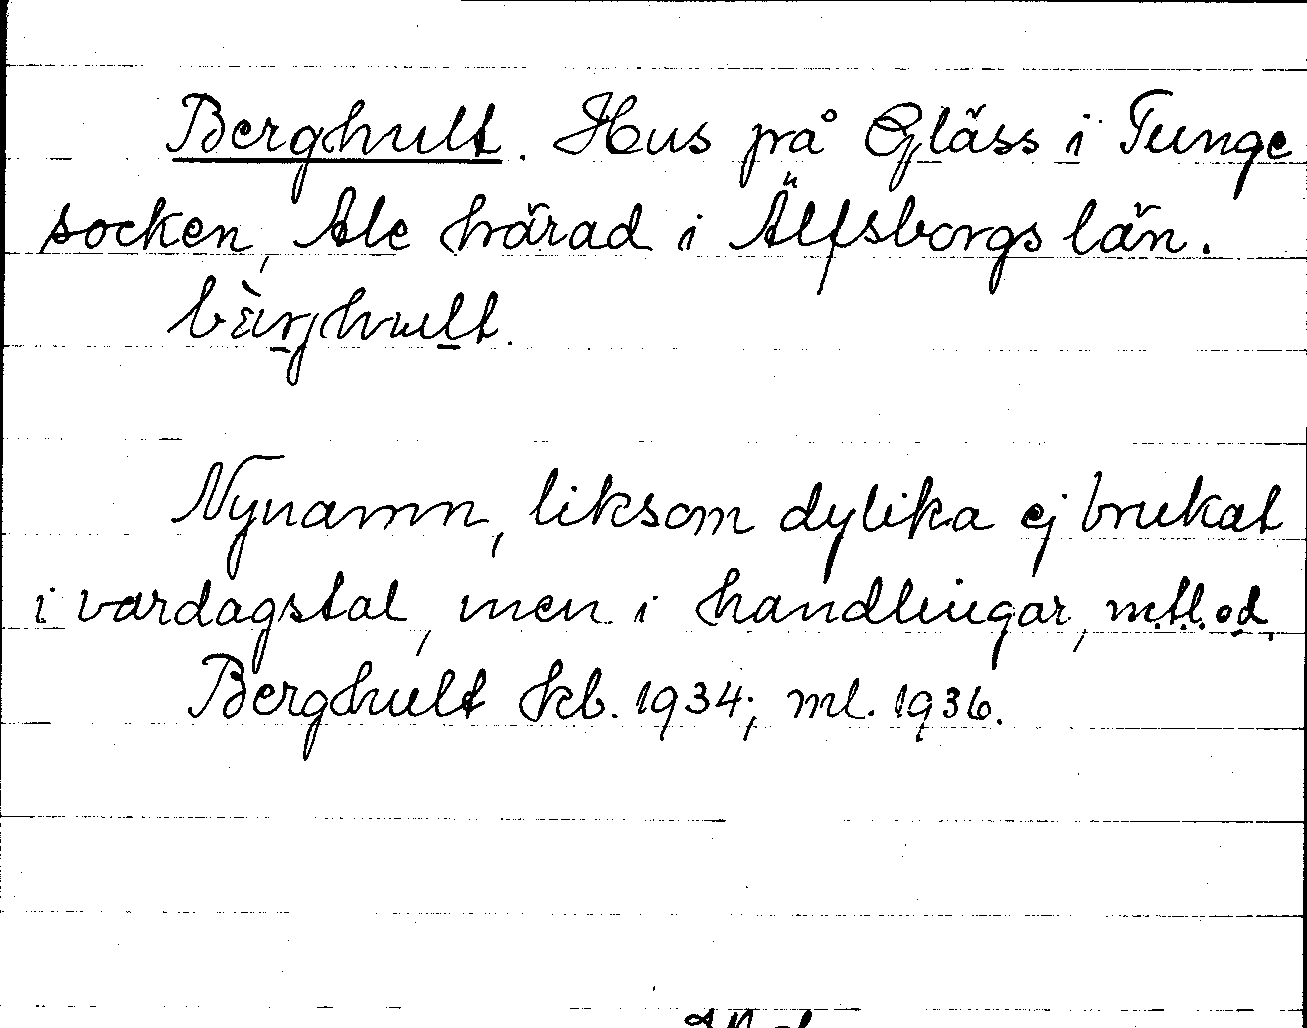 Berghult. Hus på Gläss i Tunge
socken, Ale härad i Älfsborgs län.
bàrjhult.
Nynamn, liksom dylika ej brukat
i vardagstal, men i handlingar, m.tl.od.
Berghult kb. 1934; ml. 1936.